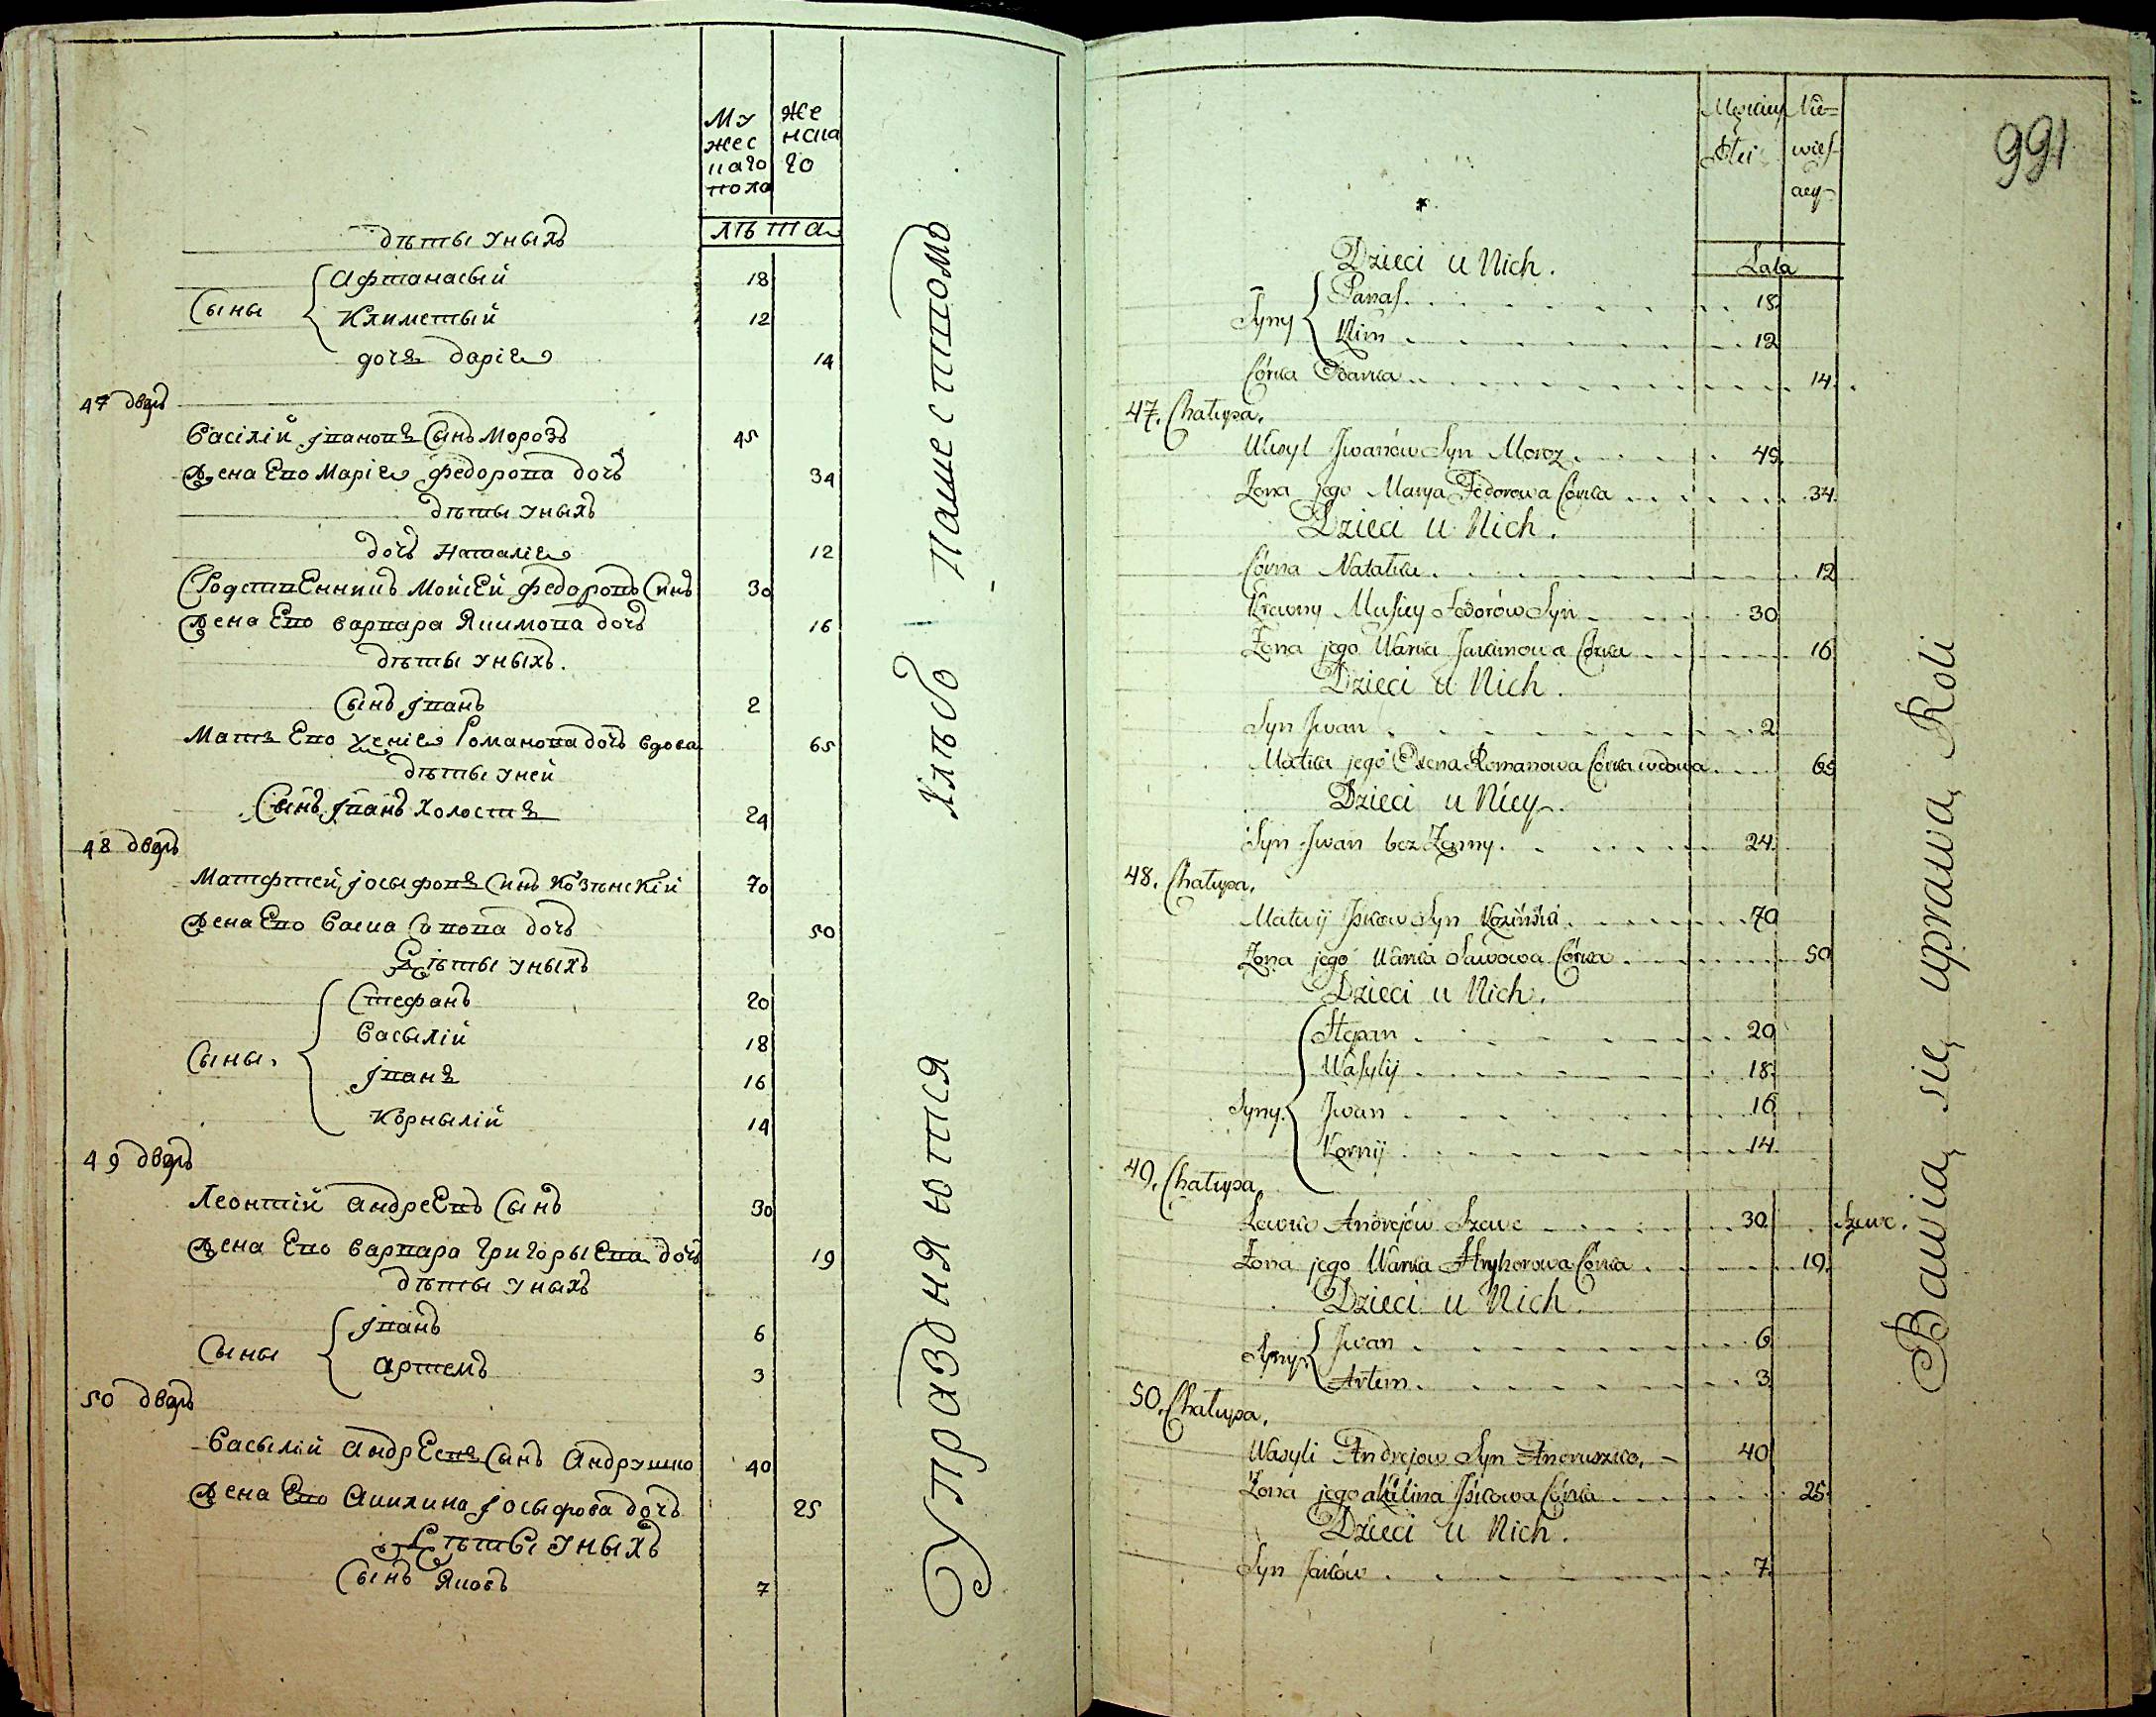 Му
жес
каго
пола
Же
нска
го
лѣта
дѣты у ныхъ
Сыны
Афтанасый
18
Климетый
12
дочь дарія
14
47 дворъ
Васілій Іванов Сынъ Морозъ 45
Жена Его Марія федорова дочь 34
дѣты у ныхъ
дочь Наталія 12
Родственникъ Мойсей федоровъ Синъ 30
Жена Его варвара Якимова дочь 16
дѣты у ныхъ.
Сынъ Іванъ 2
Мать Его Ксенія Романова дочь вдова 65
дѣты у ней
Сынъ Іванъ холостъ 24
48 дворъ
Матфтей Іосыфов Синъ Козѣнскій 70
Жена Его Васка Савова дочь 50
Дѣты у ныхъ
Сыны.
Стефанъ 20
Васылій 18
Іванъ 16
Корнылій 14
49 дворъ
Леонтій андреевъ Сынъ 30
Жена Его варвара григорыева дочь 19
дѣты у ныхъ
Сыны
Іванъ 6
артемъ 3
50 дворъ
Васылій андреевъ Сынъ Андрушко 40
Жена Его Акилина Іосыфова дочь 25
Дѣты у ныхъ
Сынъ Яковъ 7
Упражняются хлѣбопашествомъ
991
Męzkiey
Płci
Nie=
wies
ciey
Lata
Dzieci u Nich.
Syny
Panas 18.
Klim 12
Córka Darka 14.
47. Chałupa.
Wasyl Jwanów Syn Moroz 45.
Żona jego Marya Fedorowa Córka 34.
Dzieci u Nich.
Córka Natałka 12
Krewny Musiey Fedorów Syn 30
Żona jego Warka Jakimowa Córka 16
Dzieci u Nich.
Syn Jwan 2
Matka jego Oxena Romanowa Córka wdowa 65
Dzieci u Niey.
Syn Jwan bez Żenny. 24.
48. Chałupa.
Matwij Jśkow Syn Koziński 70
Żona jego Warka Sawowa Córka 50
Dzieci u Nich.
Syny.
Stepan 20
Wasylij 18.
Jwan 16
Kornij 14.
49. Chałupa.
Lewko Andrejów Szewc 30 Szewc.
Żona jego Warka Hryhorowa Córka 19.
Dzieci u Nich.
Syny
Jwan 6.
Artem 3.
50. Chałupa.
Wasyli Andrejow Syn Andruszko. 40
Żona jego Akilina Jśkowa Córka 25.
Dzieci u Nich.
Syn Jaków 7.
Bawią się uprawą Roli